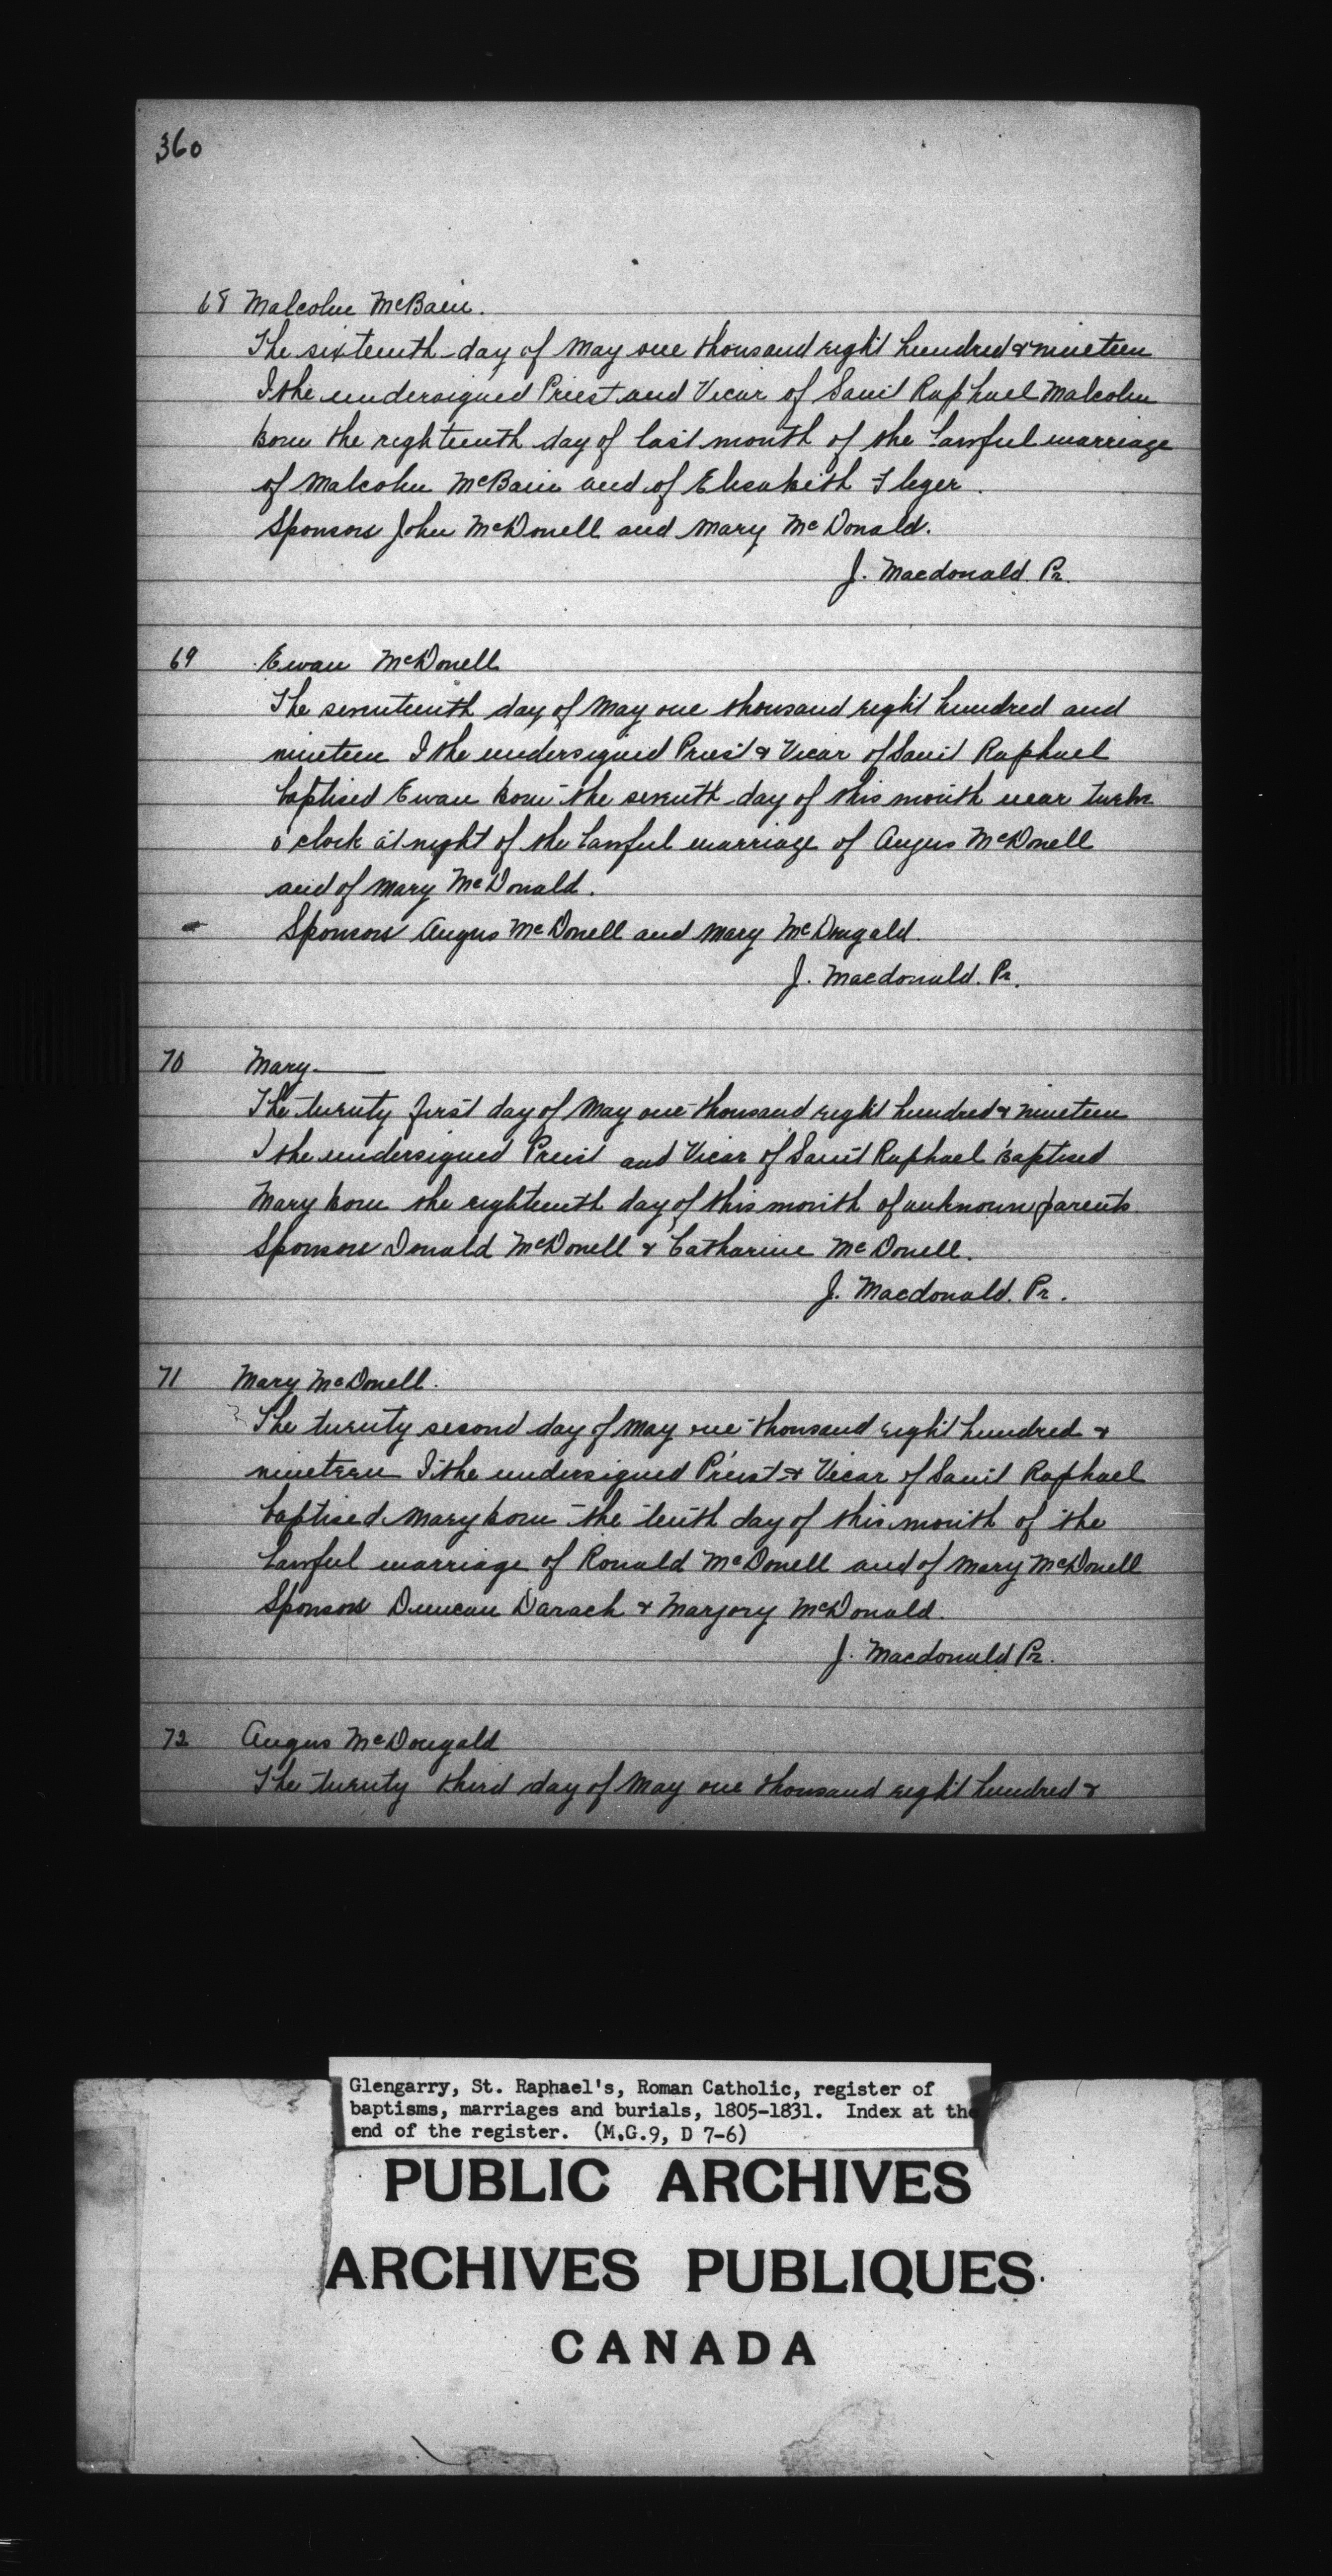 360
68 Malcolm McBain.
The sixteenth day of May one thousand eight hundred & nineteen
I the undersigned Priest and Vicar of Saint Raphael Malcolm
born the eighteenth day of last month of the lawful marriage
of Malcolm McBain and of Elisabeth Fleger.
Sponsors John McDonell and Mary McDonald.
J. Macdonald. Pr.
69 Ewan McDonell
The seventeenth day of May one thousand eight hundred and
nineteen I the undersigned Priest & Vicar of Saint Raphael
baptised Ewan born the seventh day of this month near twelve
o'clock at night of the lawful marriage of Angus McDonell
and of Mary McDonald.
Sponsors Angus McDonell and Mary McDougald.
J. Macdonald. Pr.
70 Mary ——
The twenty first day of May one thousand eight hundred & nineteen
I the undersigned Priest and Vicar of Saint Raphael baptised
Mary born the eighteenth day of this month of unknown parents.
Sponsors Donald McDonell & Catharine McDonell.
J. Macdonald. Pr.
71 Mary McDonell.
The twenty second day of May one thousand eight hundred &
nineteen I the undersigned Priest & Vicar of Saint Raphael
baptised Mary born the tenth day of this month of the
lawful marriage of Ronald McDonell and of Mary McDonell
Sponsors Duncan Darach & Marjory McDonald.
J. Macdonald Pr.
72 Angus McDougald
The twenty third day of May one thousand eight hundred &
Glengarry, St. Raphael's, Roman Catholic, register of
baptisms, marriages and burials, 1805-1831. Index at the
end of the register. (M.G.9, D 7-6)
PUBLIC ARCHIVES
ARCHIVES PUBLIQUES
CANADA